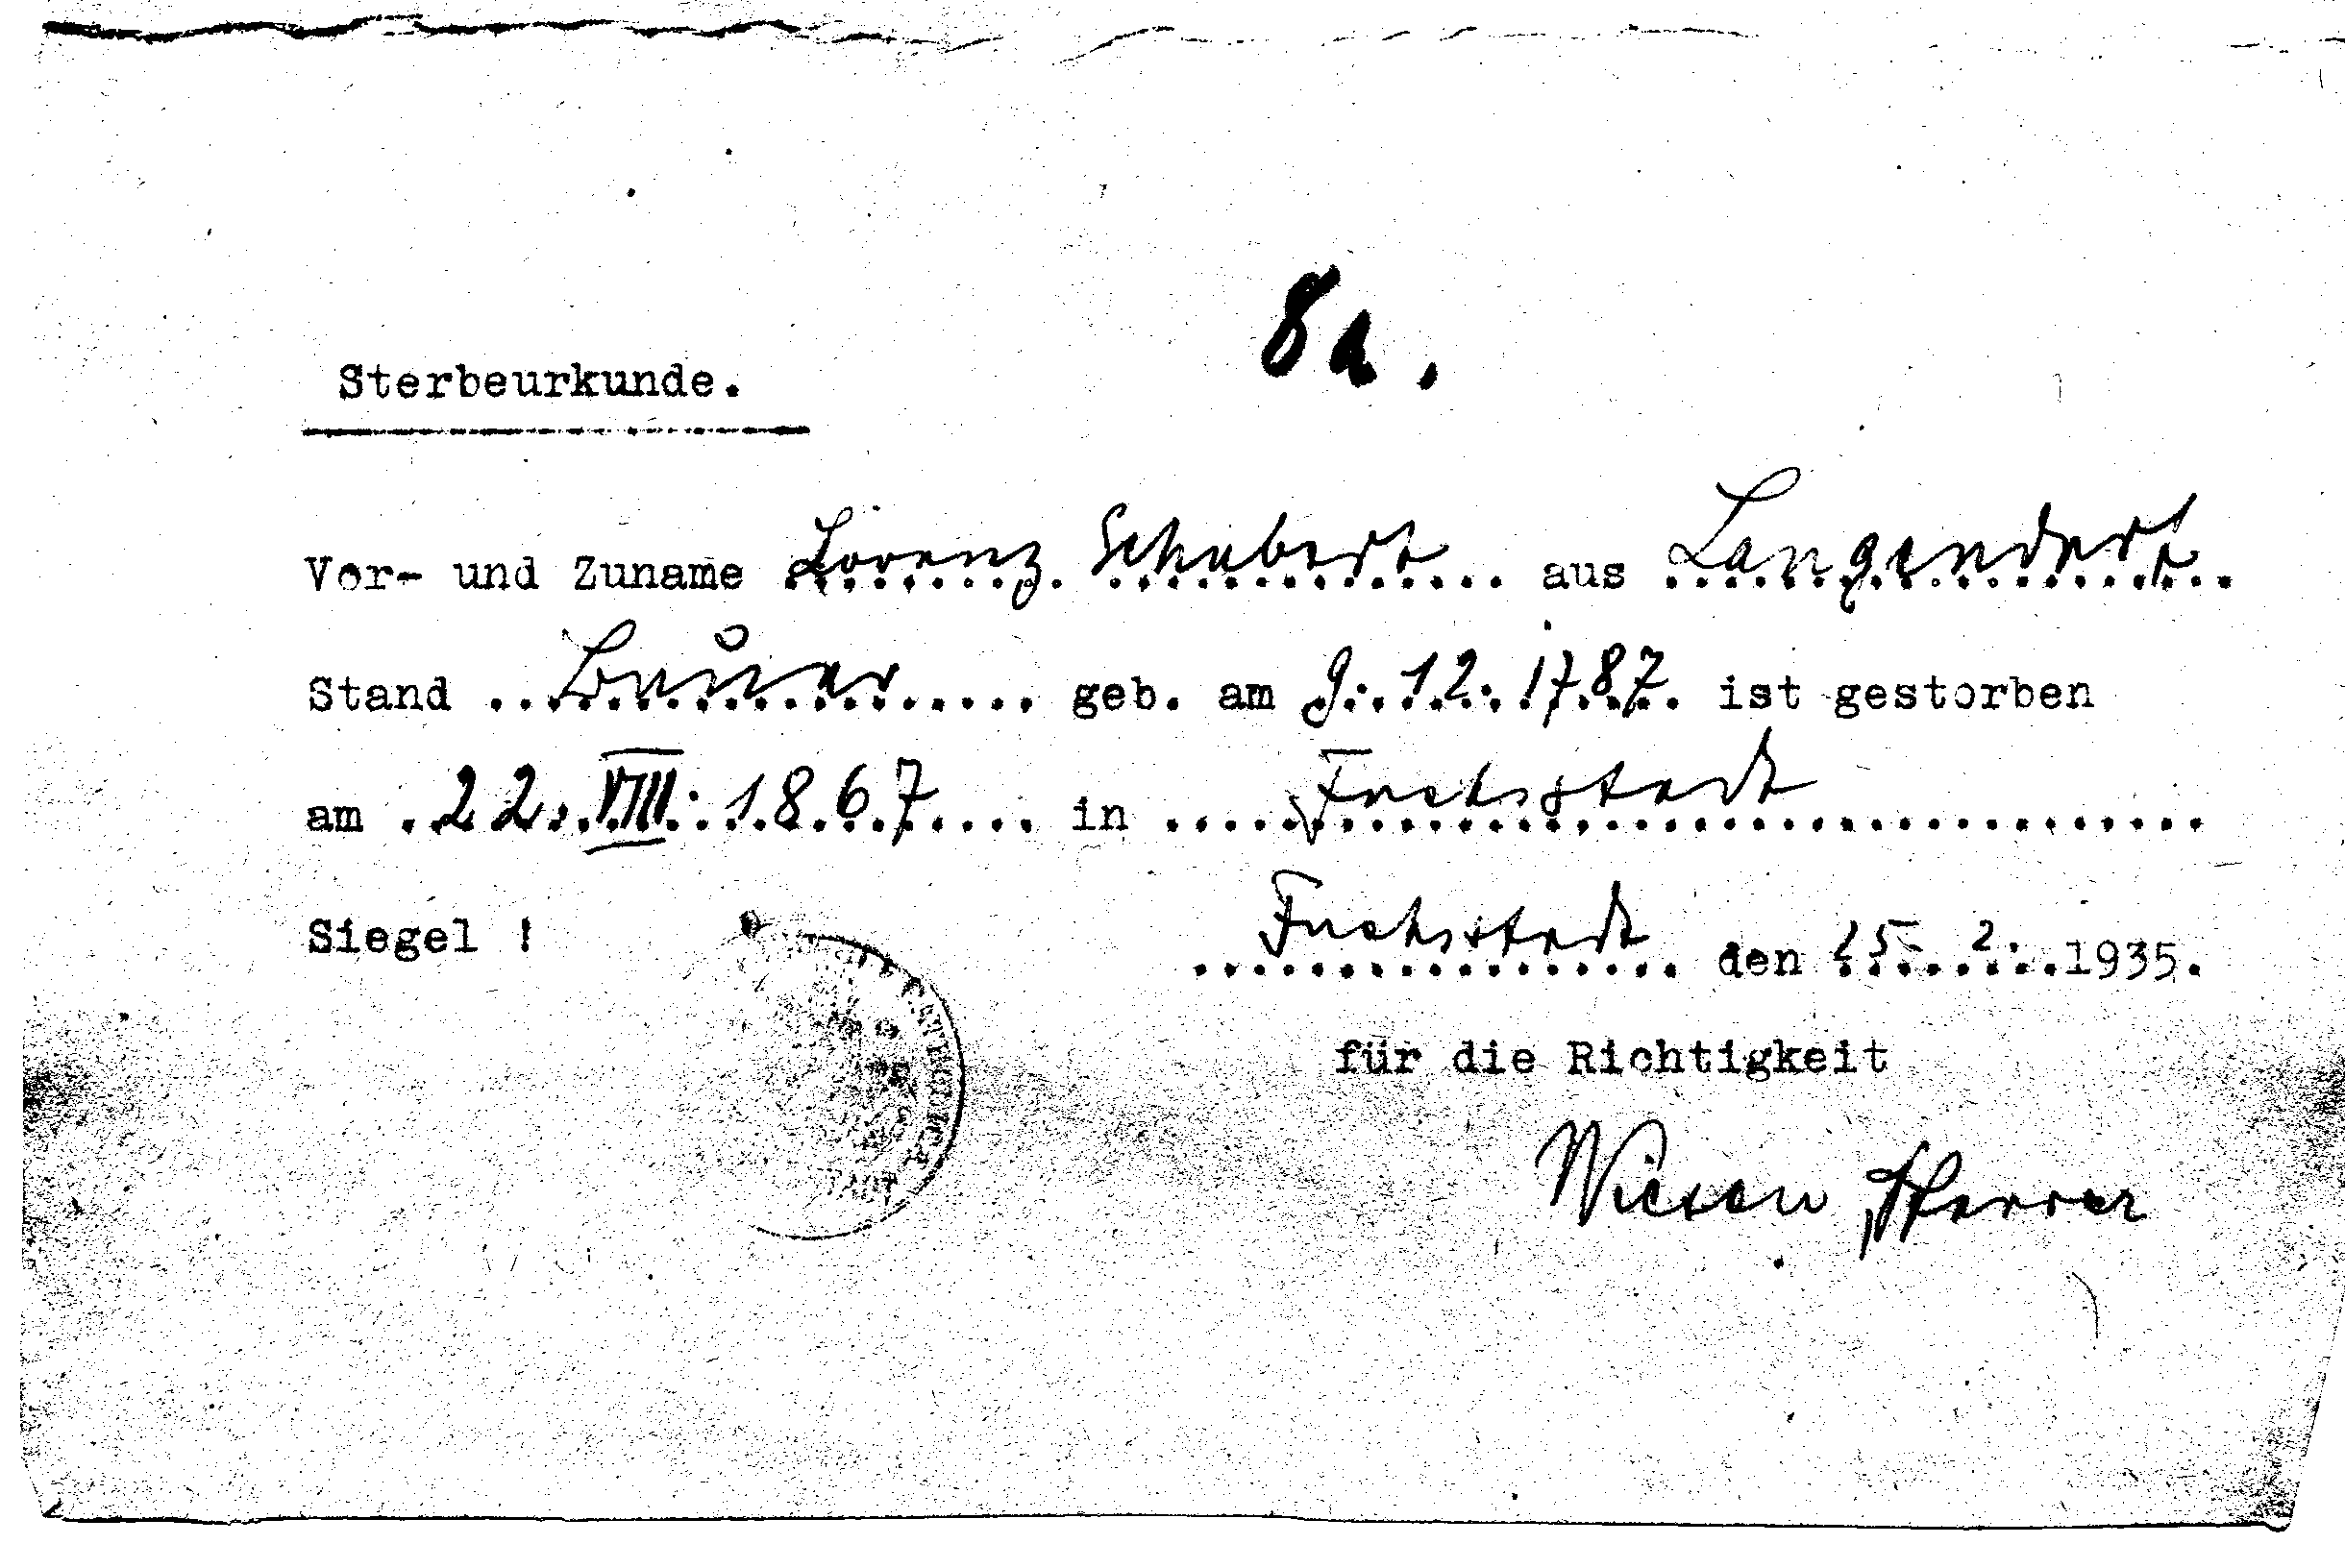 8a.
Sterbeurkunde.
Vor- und Zuname Lorenz Schubert aus Langendorf
Stand Bauer geb. am 9. 12. 1787 ist gestorben
am 22. VIII. 1867 in Fuchsstadt
Siegel ! Fuchsstadt den 25. 2. 1935.
für die Richtigkeit
Pfarrer